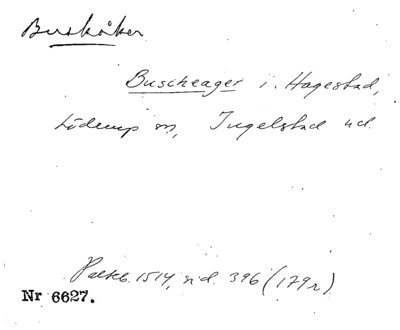 Buskåker
Buscheager i. Hagestad,
Löderup sn, Ingelstad hd.
Palteb. 1514, sid. 396 (179r)
Nr 6627.